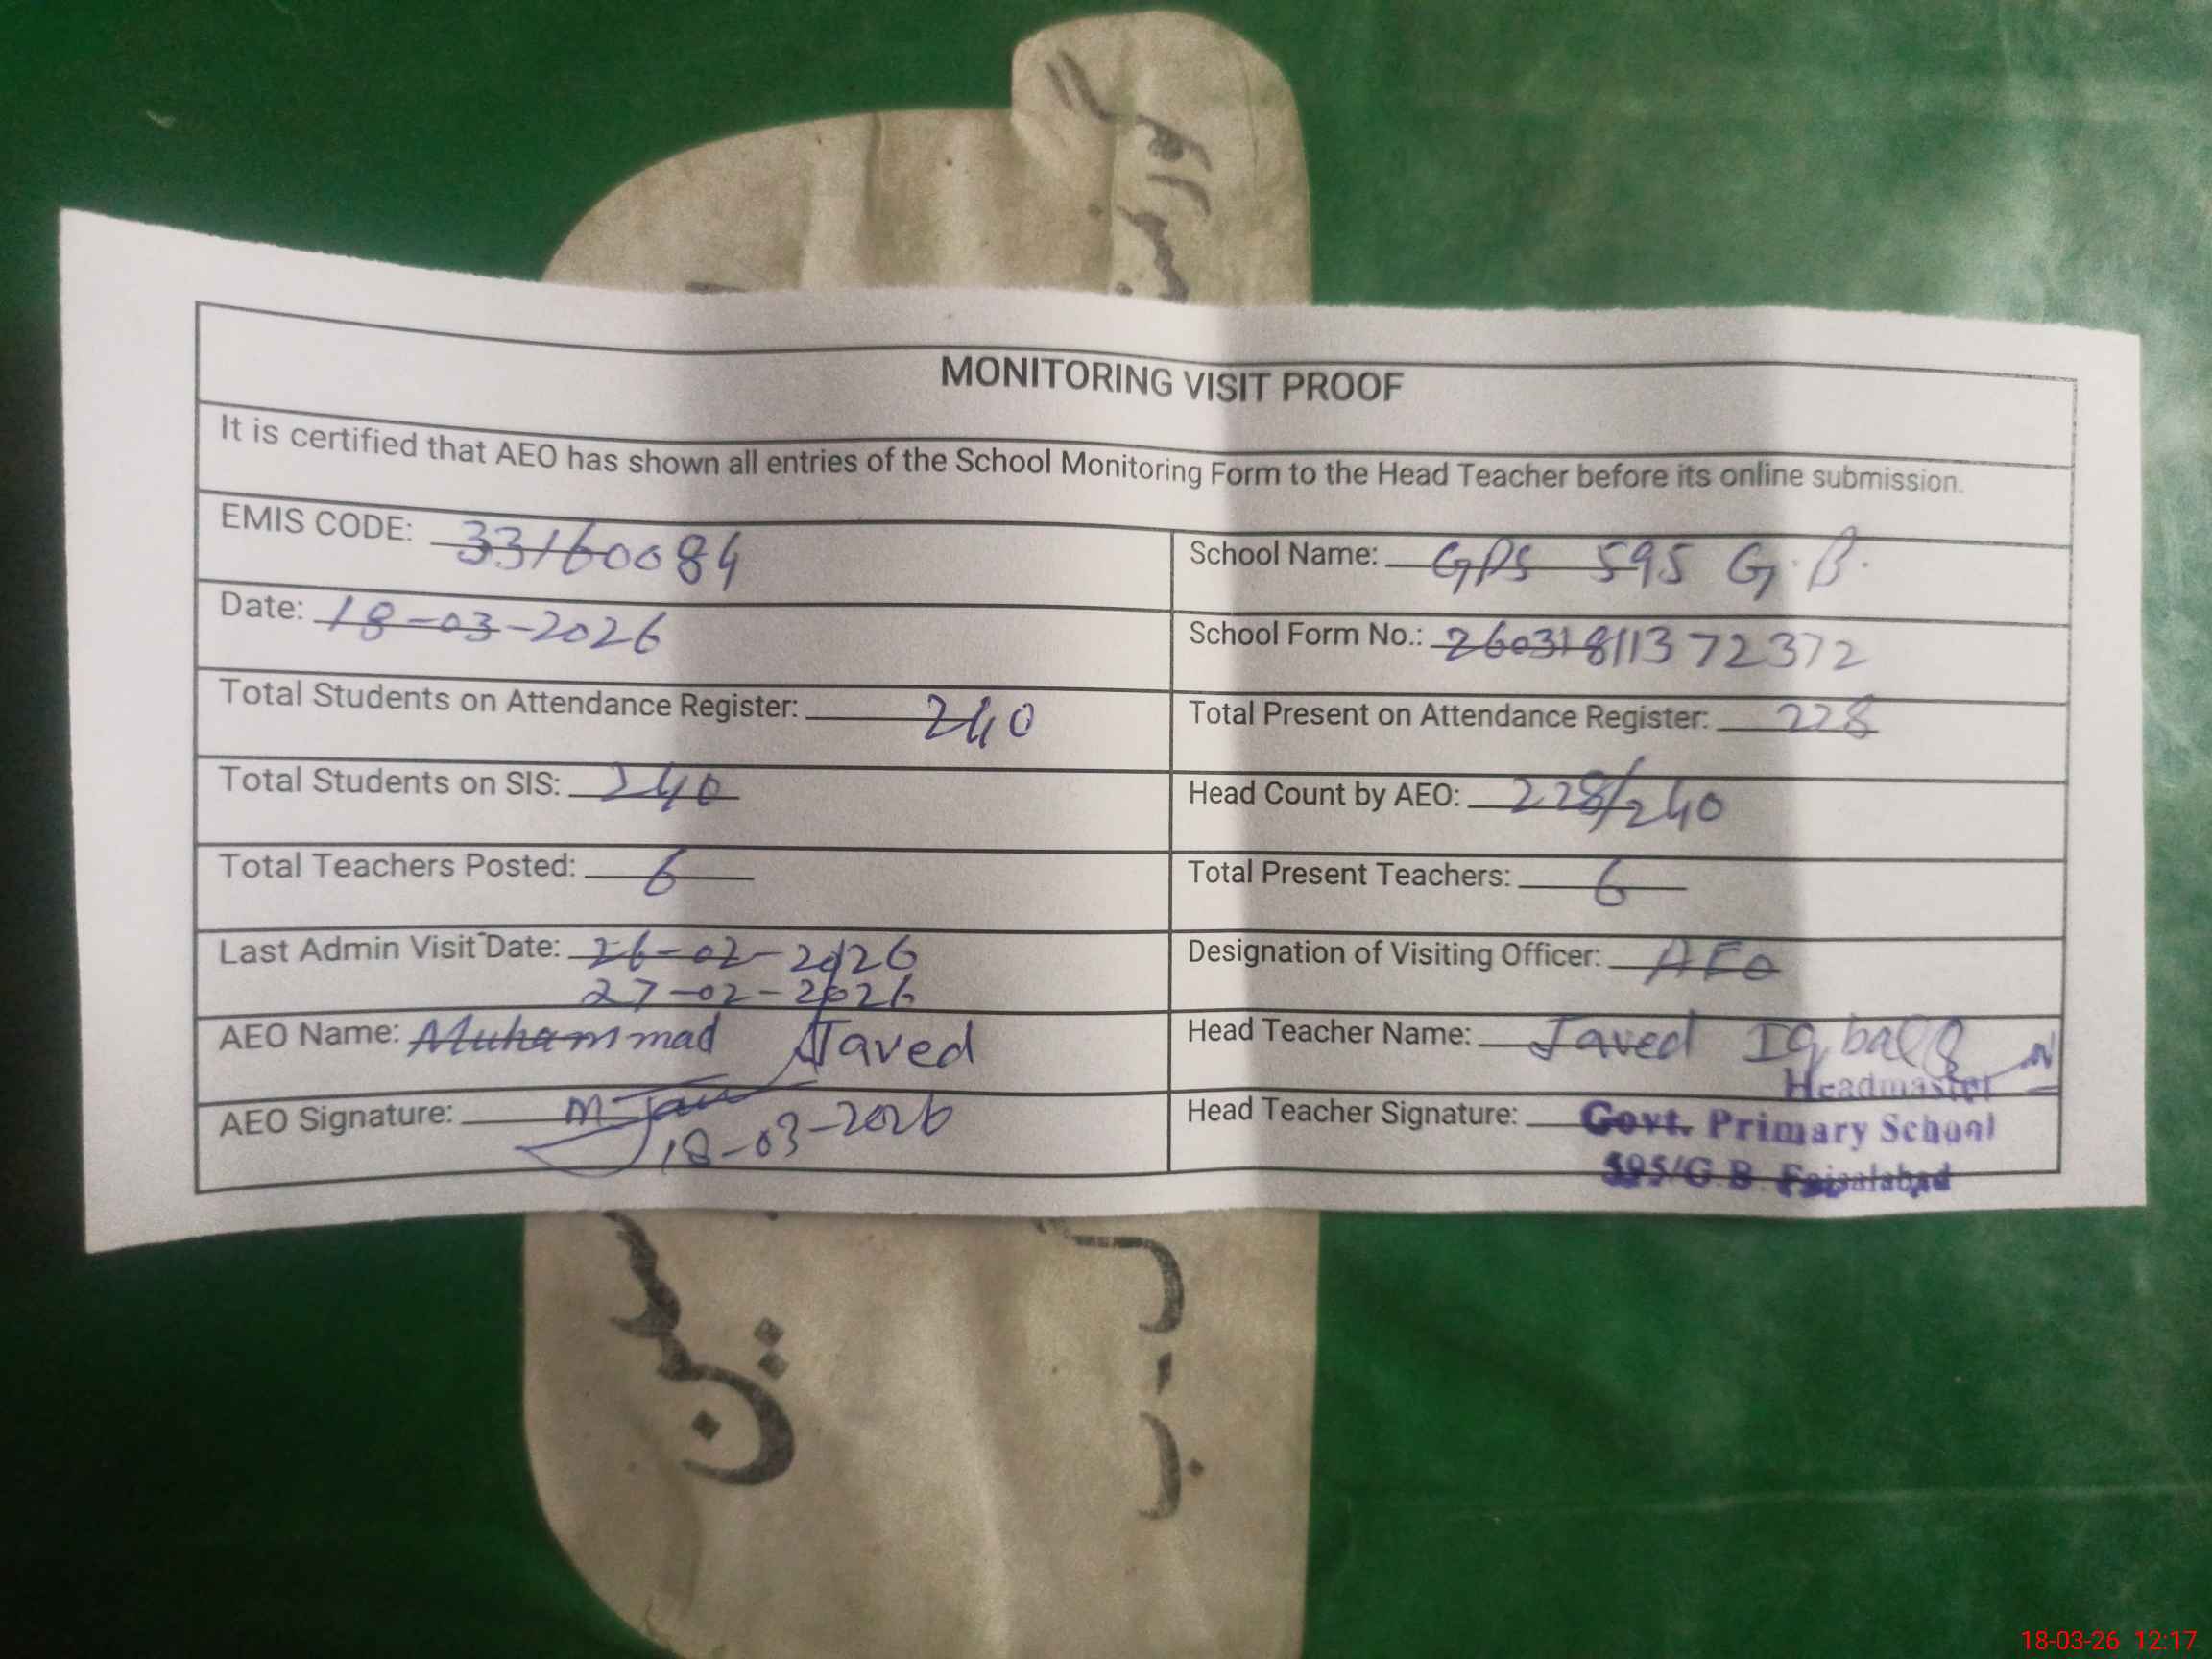 MONITORING VISIT PROOF
It is certified that AEO has shown all entries of the School Monitoring Form to the Head Teacher before its online submission.
EMIS CODE: 33160084
School Name: GPS 595 G.B.
Date: 18-03-2026
School Form No.: 26031811372372
Total Students on Attendance Register: 240
Total Present on Attendance Register: 228
Total Students on SIS: 240
Head Count by AEO: 228/240
Total Teachers Posted: 6
Total Present Teachers: 6
Last Admin Visit Date: 26-02-2026
27-02-2026
Designation of Visiting Officer: AEO
AEO Name: Muhammad Javed
Head Teacher Name: Javed Iqbal
Headmaster
AEO Signature: M Jav
18-03-2026
Head Teacher Signature: Govt. Primary School
595/G.B. Faisalabad
18-03-26 12:17